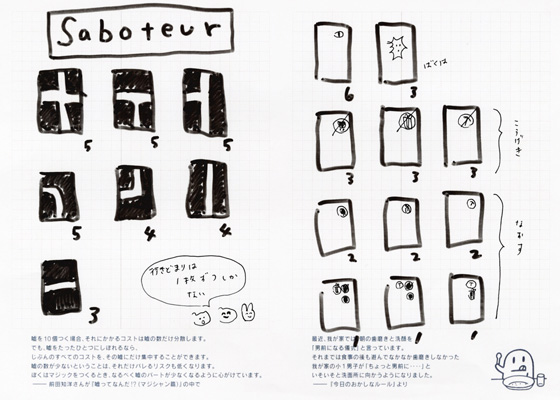 Saboteur
5
5
5
5
4
4
3
行きどまりは
1枚ずつしか
ない
嘘を10個つく場合、それにかかるコストは嘘の数だけ分散します。
でも、嘘をたったひとつにしぼれるなら、
じぶんのすべてのコストを、その嘘にだけ集中することができます。
嘘の数が少ないということは、それだけバレるリスクも低くなります。
ぼくはマジックをつくるとき、なるべく嘘のパートが少なくなるように心がけています。
—— 前田知洋さんが『嘘ってなんだ!?(マジシャン篇)』の中で
①
6
3
ばくは
3
3
3
こうげき
2
2
2
なおす
1
1
1
最近、我が家では朝の歯磨きと洗顔を
「男前になる儀式」と言っています。
それまでは食事の後も遊んでなかなか歯磨きしなかった
我が家の小1男子が「ちょっと男前に‥‥」と
いそいそと洗面所に向かうようになりました。
——「今日のおかしなルール」より